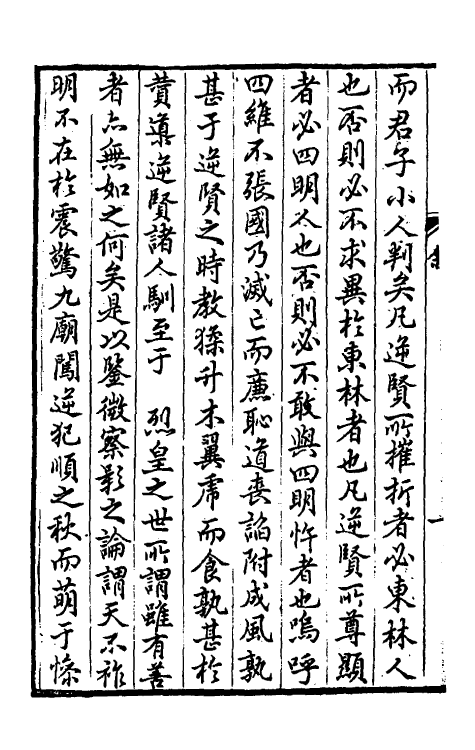 而君子小人判矣凡逆賢所摧折者必東林人
也否則必不求異於東林者也凡逆賢所尊顯
者必四明人也否則必不敢與四明忤者也嗚呼
四維不張國乃滅亡而廉恥道喪諂附成風孰
甚于逆賢之時教猱升木翼虎而食孰甚於
贊導逆賢諸人馴至于　烈皇之世所謂雖有善
者亦無如之何矣是以鑒微察影之論謂天不祚
明不在於震驚九廟闖逆犯順之秋而萌于
一